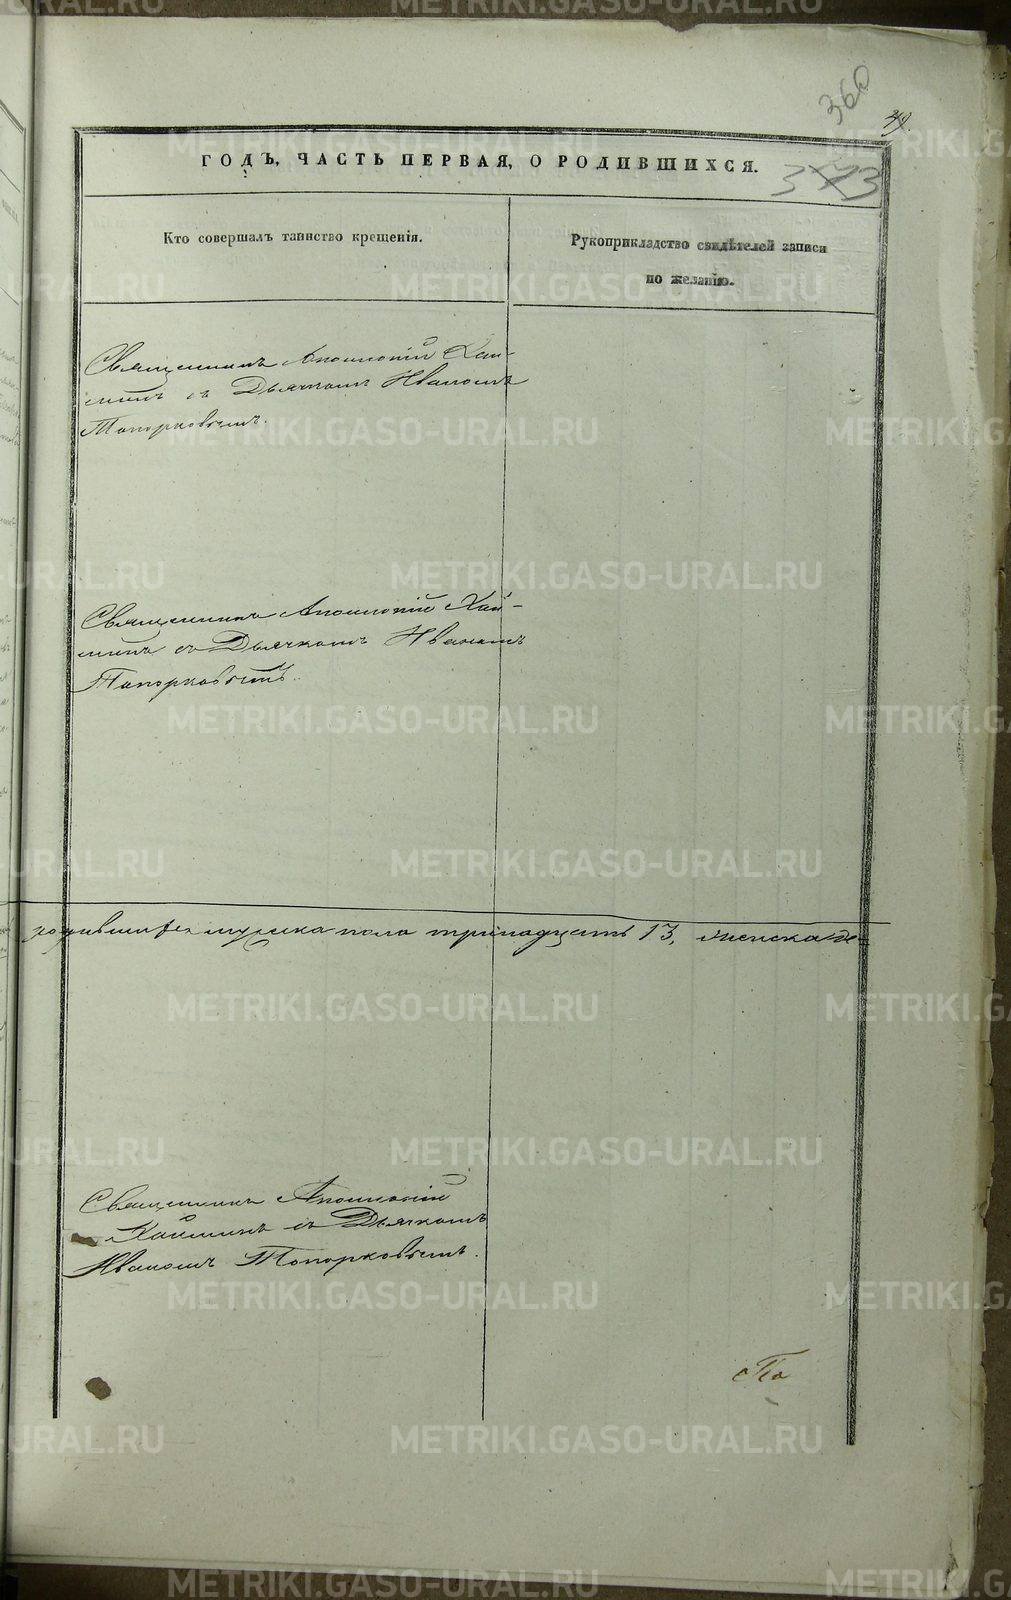 360
49.
ГОДЪ, ЧАСТЬ ПЕРВАЯ, О РОДИВШИХСЯ.
373
Кто совершалъ таинство крещенія.
Рукоприкладство свидѣтелей записи
по желанію.
Священникъ Аполлоній Хай-
минъ съ Дьячкомъ Иваномъ
Топорковымъ.
Священникъ Аполлоній Хай-
минъ съ Дьячкомъ Иваномъ
Топорковымъ.
родившихся мужска пола тринадцать 13, женска де-
Священникъ Аполлоній
Хайминъ съ Дьячкомъ
Иваномъ Топорковымъ.
По
METRIKI.GASO-URAL.RU